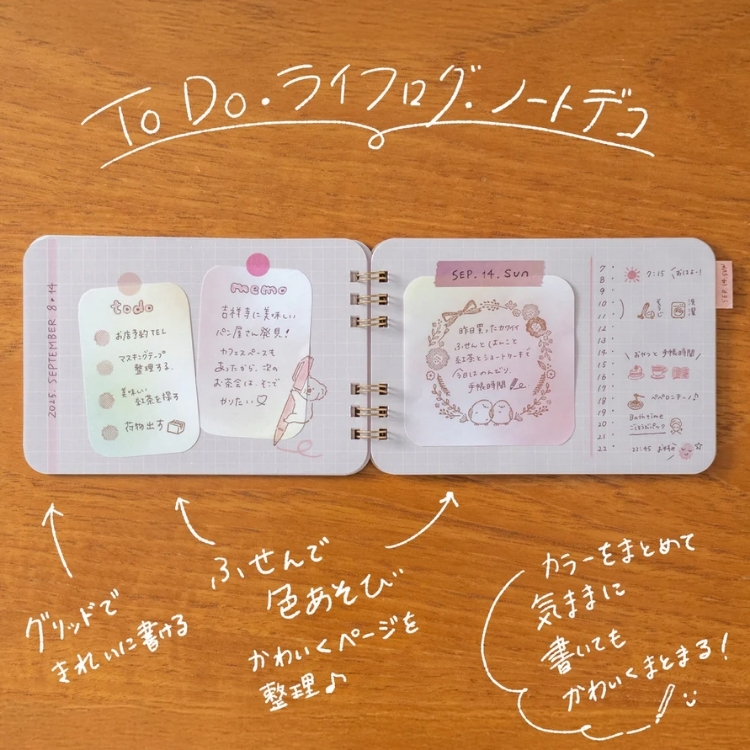 ToDo・ライフログ・ノートデコ
2025. SEPTEMBER 8・14
todo
お店予約TEL
マスキングテープ
整理する
美味しい
紅茶を探す
荷物出す
memo
吉祥寺に美味しい
パン屋さん発見!
カフェスペースも
あったから、次の
お茶会は、そこで
やりたい♡
SEP. 14. Sun
昨日買ったカワイイ
ふせんとはんこと
紅茶とショートケーキで
今日はのんびり、
手帳時間
7
8
9
10
11
12
13
14
15
16
17
18
19
20
21
22
7:15 おはよー!
そうじ
洗濯
\ おやつと手帳時間 /
ペペロンチーノ♪
Bathtime
21:45 おやすみ
グリッドで
きれいに書ける
ふせんで
色あそび
かわいくページを
整理♪
カラーをまとめて
気ままに
書いても
かわいくまとまる!